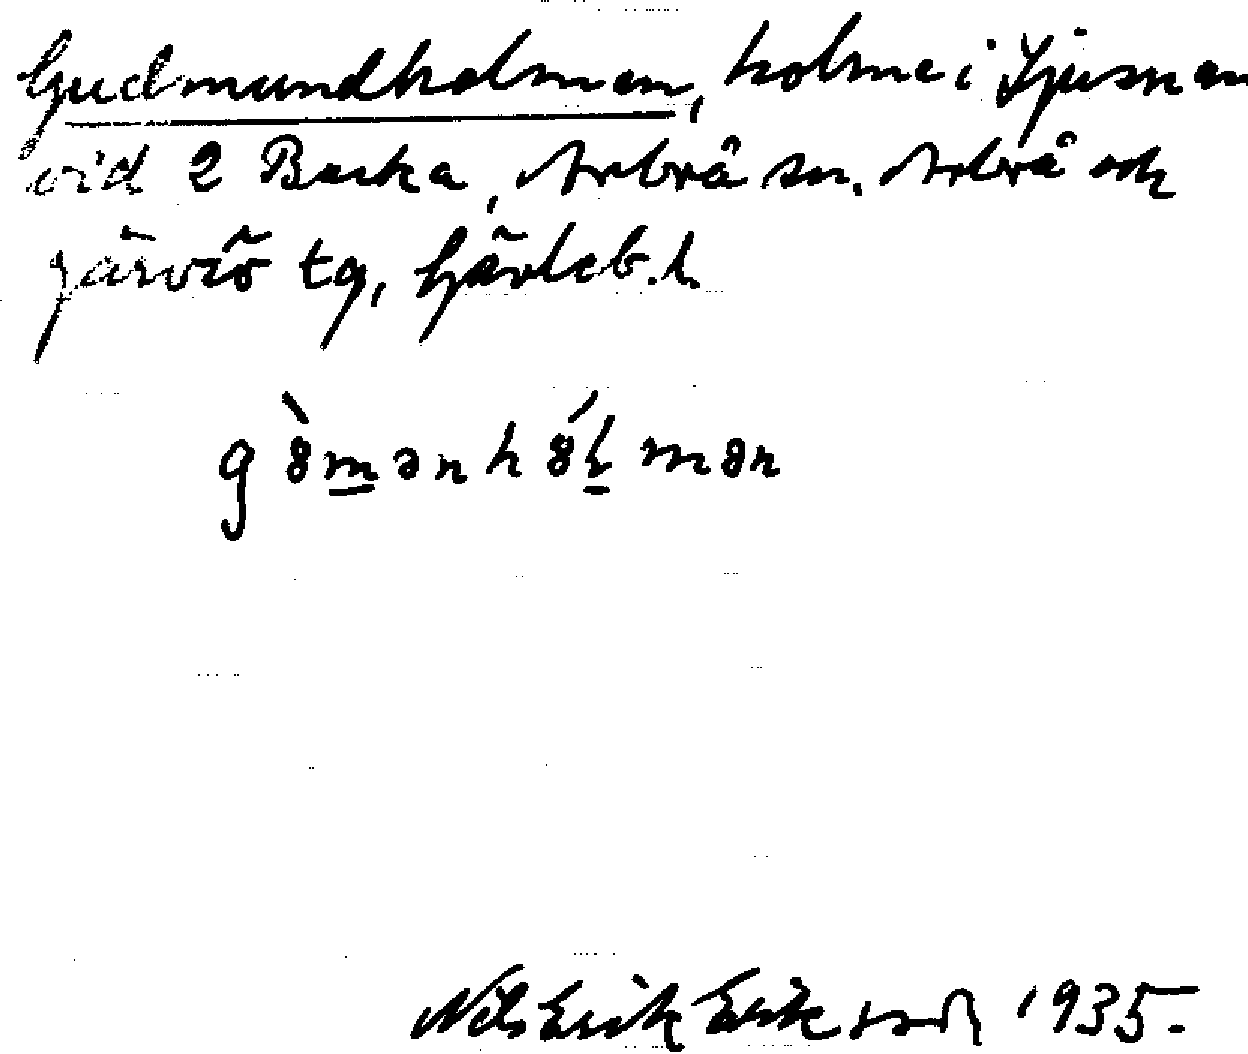 Gudmundholmen, holme i Ljusnan
vid 2 Backa, Arbrå sn. Arbrå och
Järvsö tg, Gävleb. l.
gò̀mənhó̱lmən
Nils Erik Eriksson 1935.